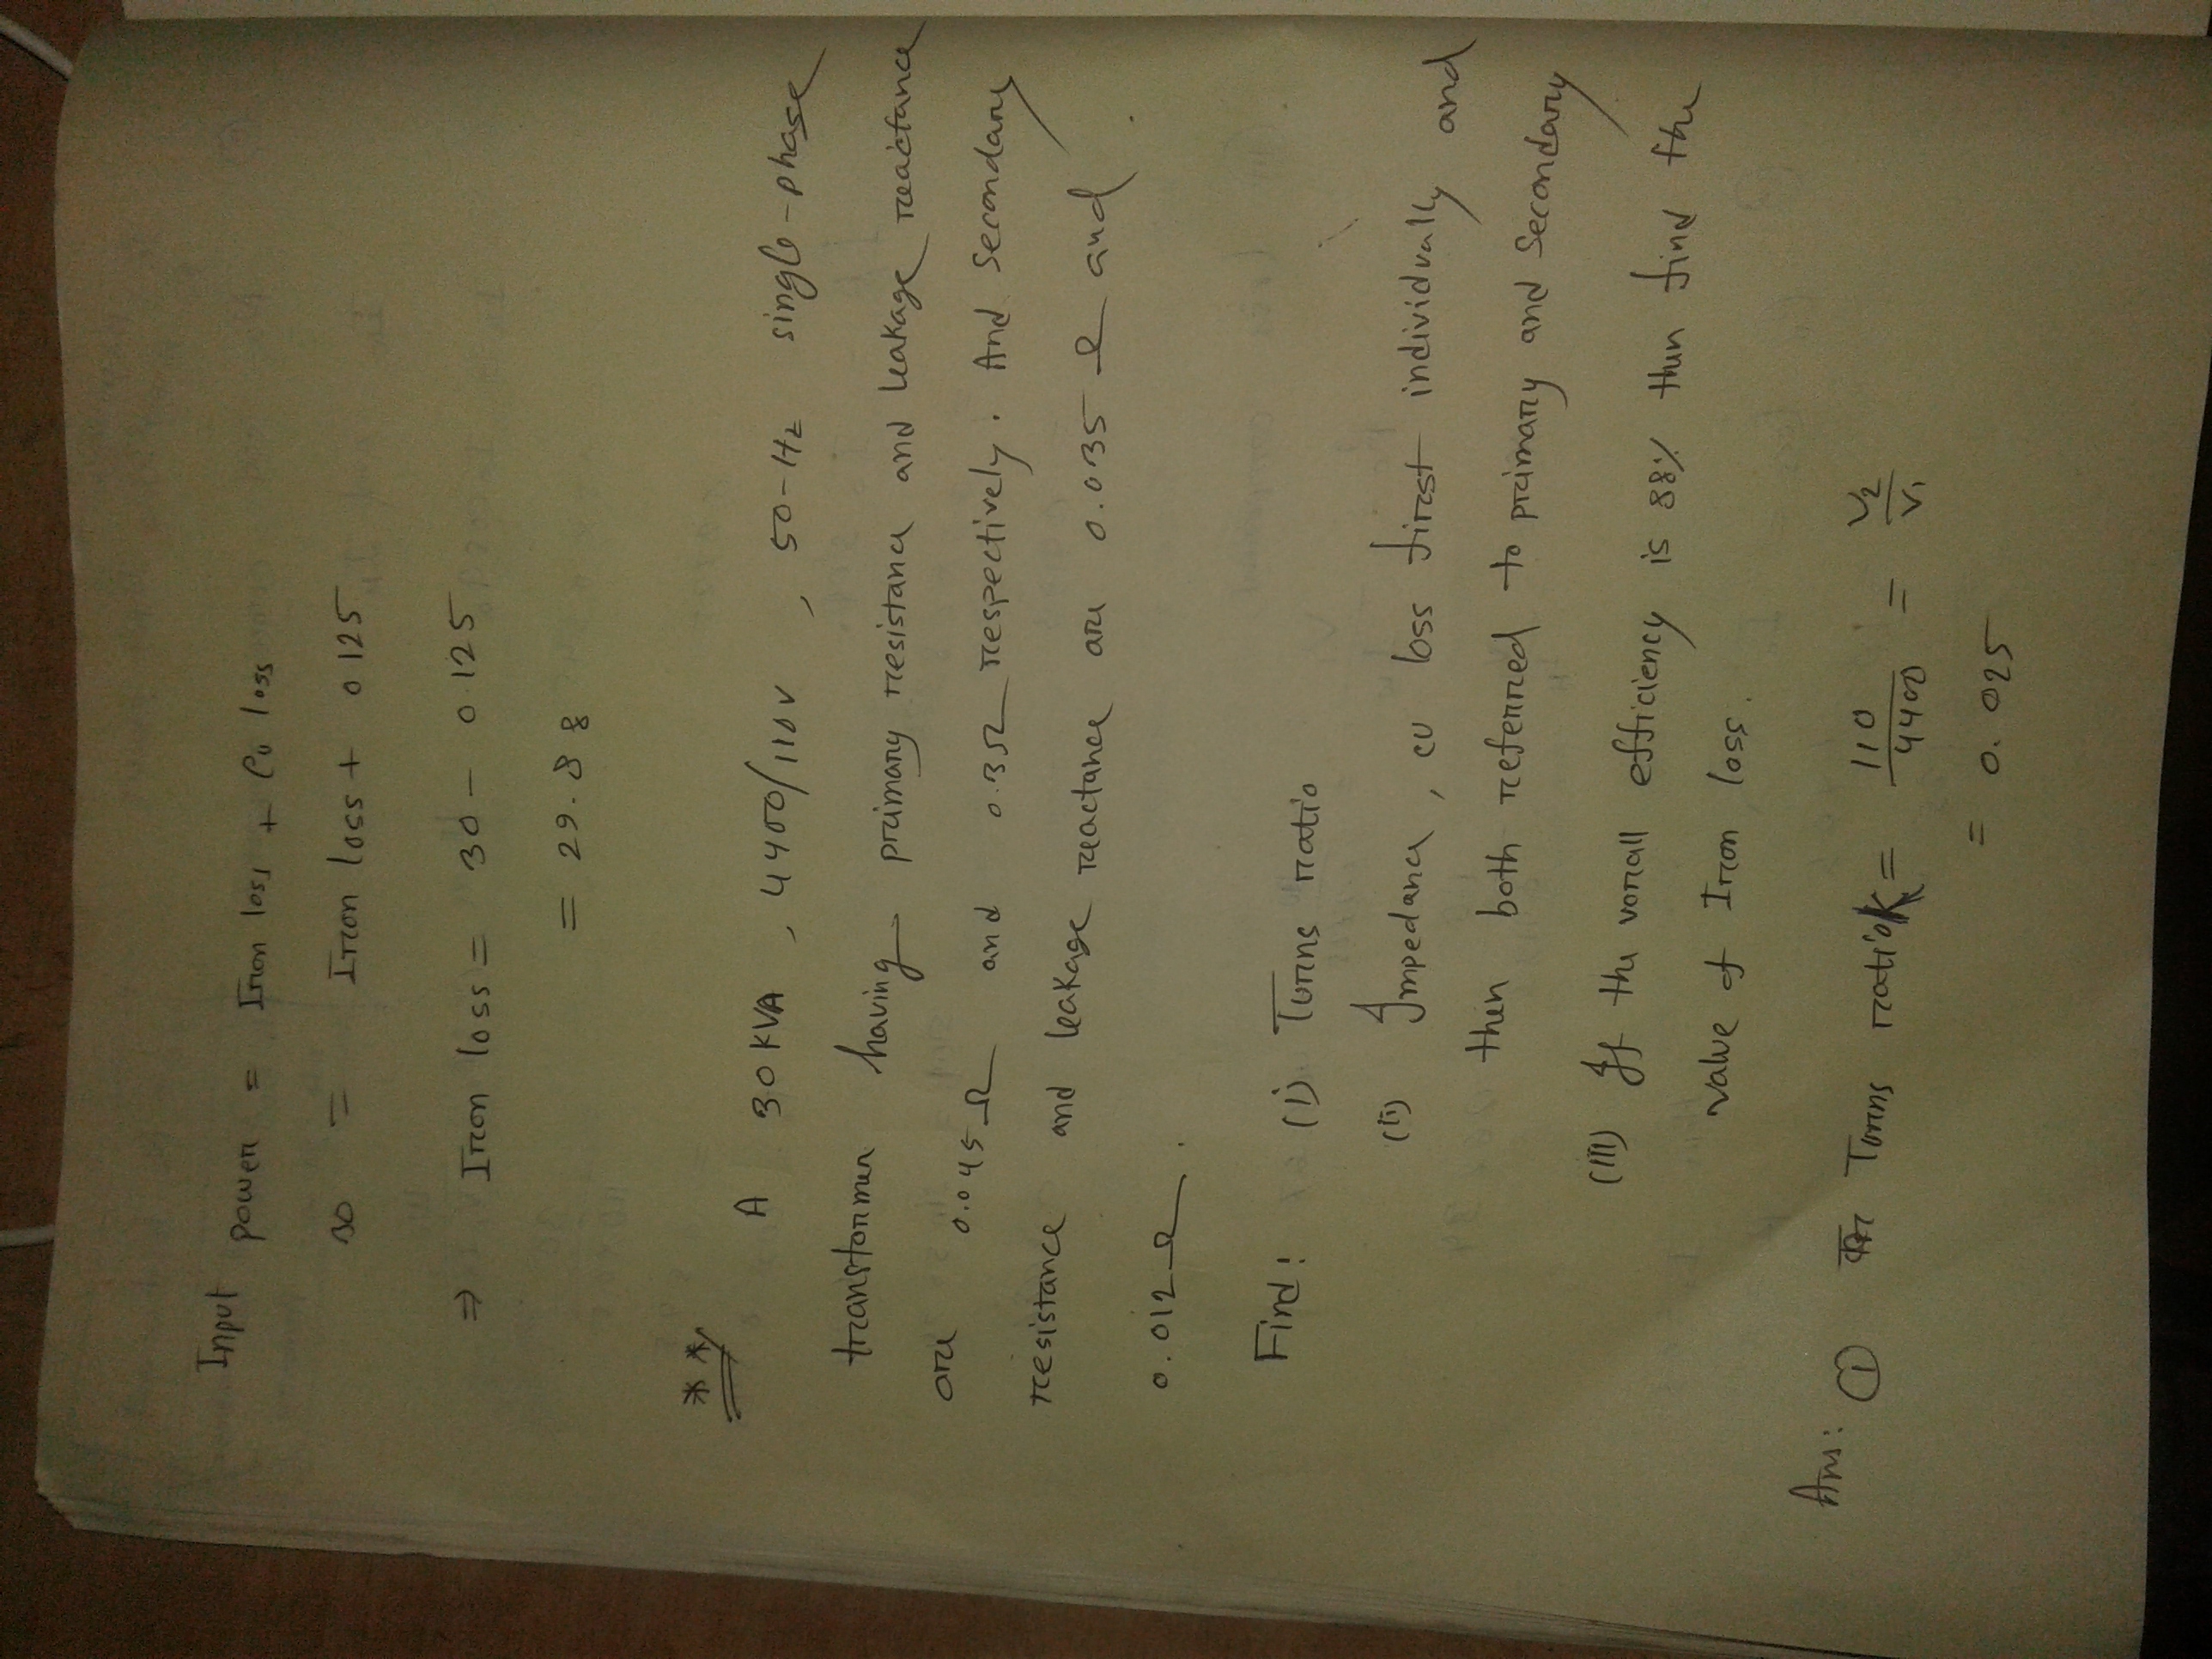 Input power = Iron loss + Cu loss
30 = Iron loss + 0.125
⇒ Iron loss = 30 - 0.125
= 29.88
**
A 30 KVA, 4400/110V, 50-Hz single-phase
transformer having primary resistance and leakage reactance
are 0.045Ω and 0.3Ω respectively. And Secondary
resistance and leakage reactance are 0.035 Ω and
0.012Ω.
Find: (i) Turns ratio
(ii) Impedance, cu loss first individually and
then both referred to primary and Secondary
(iii) If the vorall efficiency is 88% then find the
value of Iron loss.
Ans: (i) Turns ratio K = 110/4400 = V₂/V₁
= 0.025